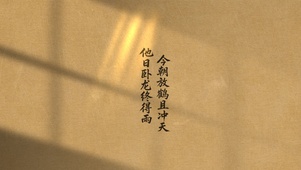 他日卧龙终得雨
今朝放鹤且冲天